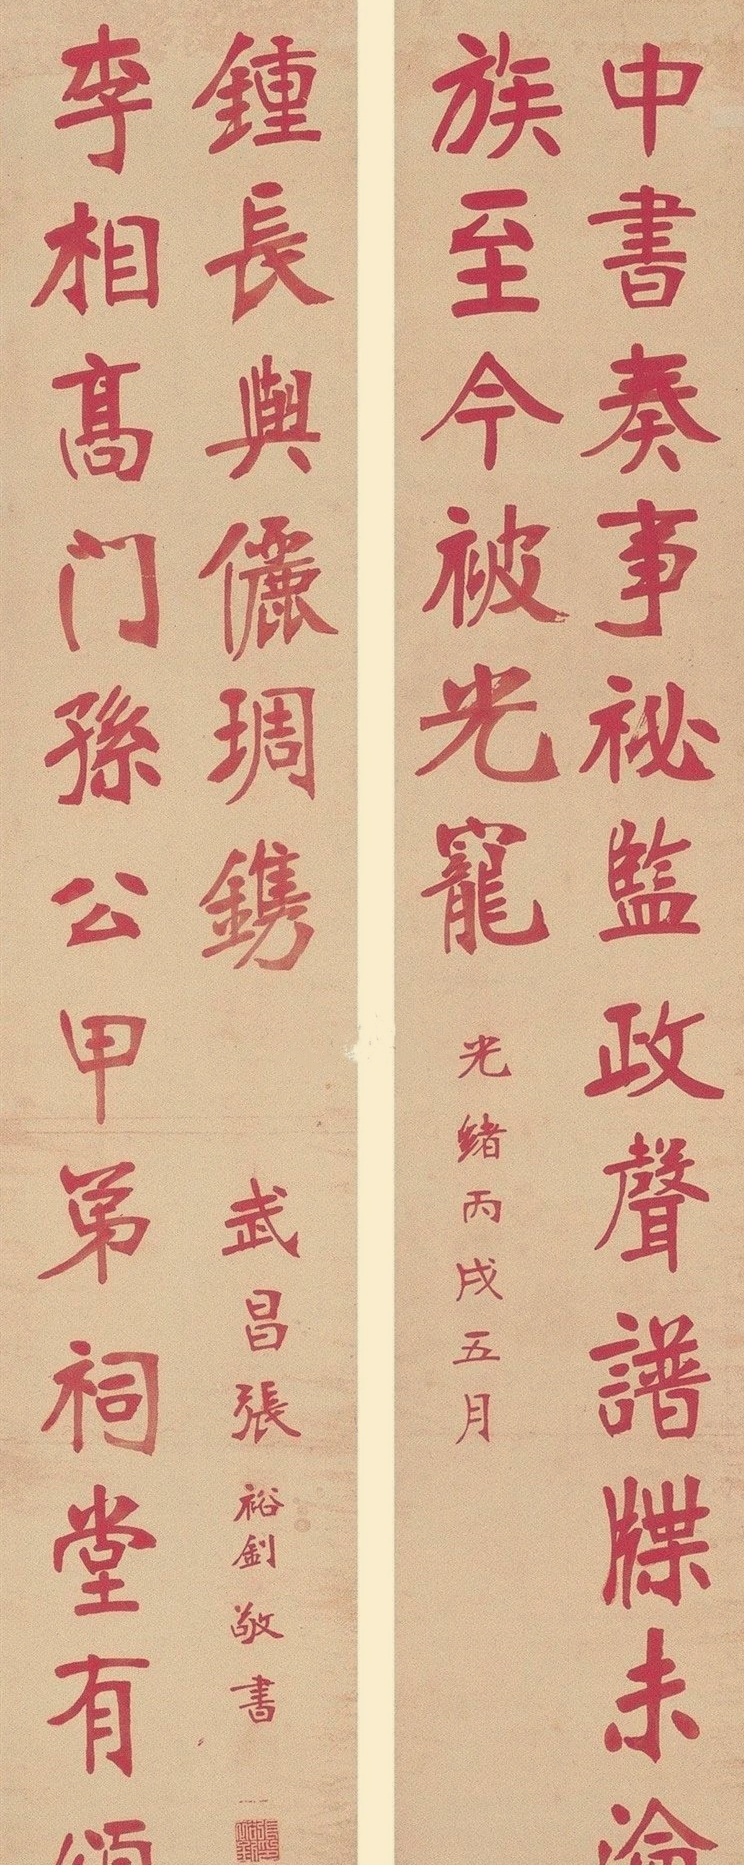 中書奏事祕監政聲譜牒未
族至今被光寵
光緒丙戌五月
李相髙门孫公甲弟祠堂有
鍾長與儷琱鐫
武昌張裕釗敬書